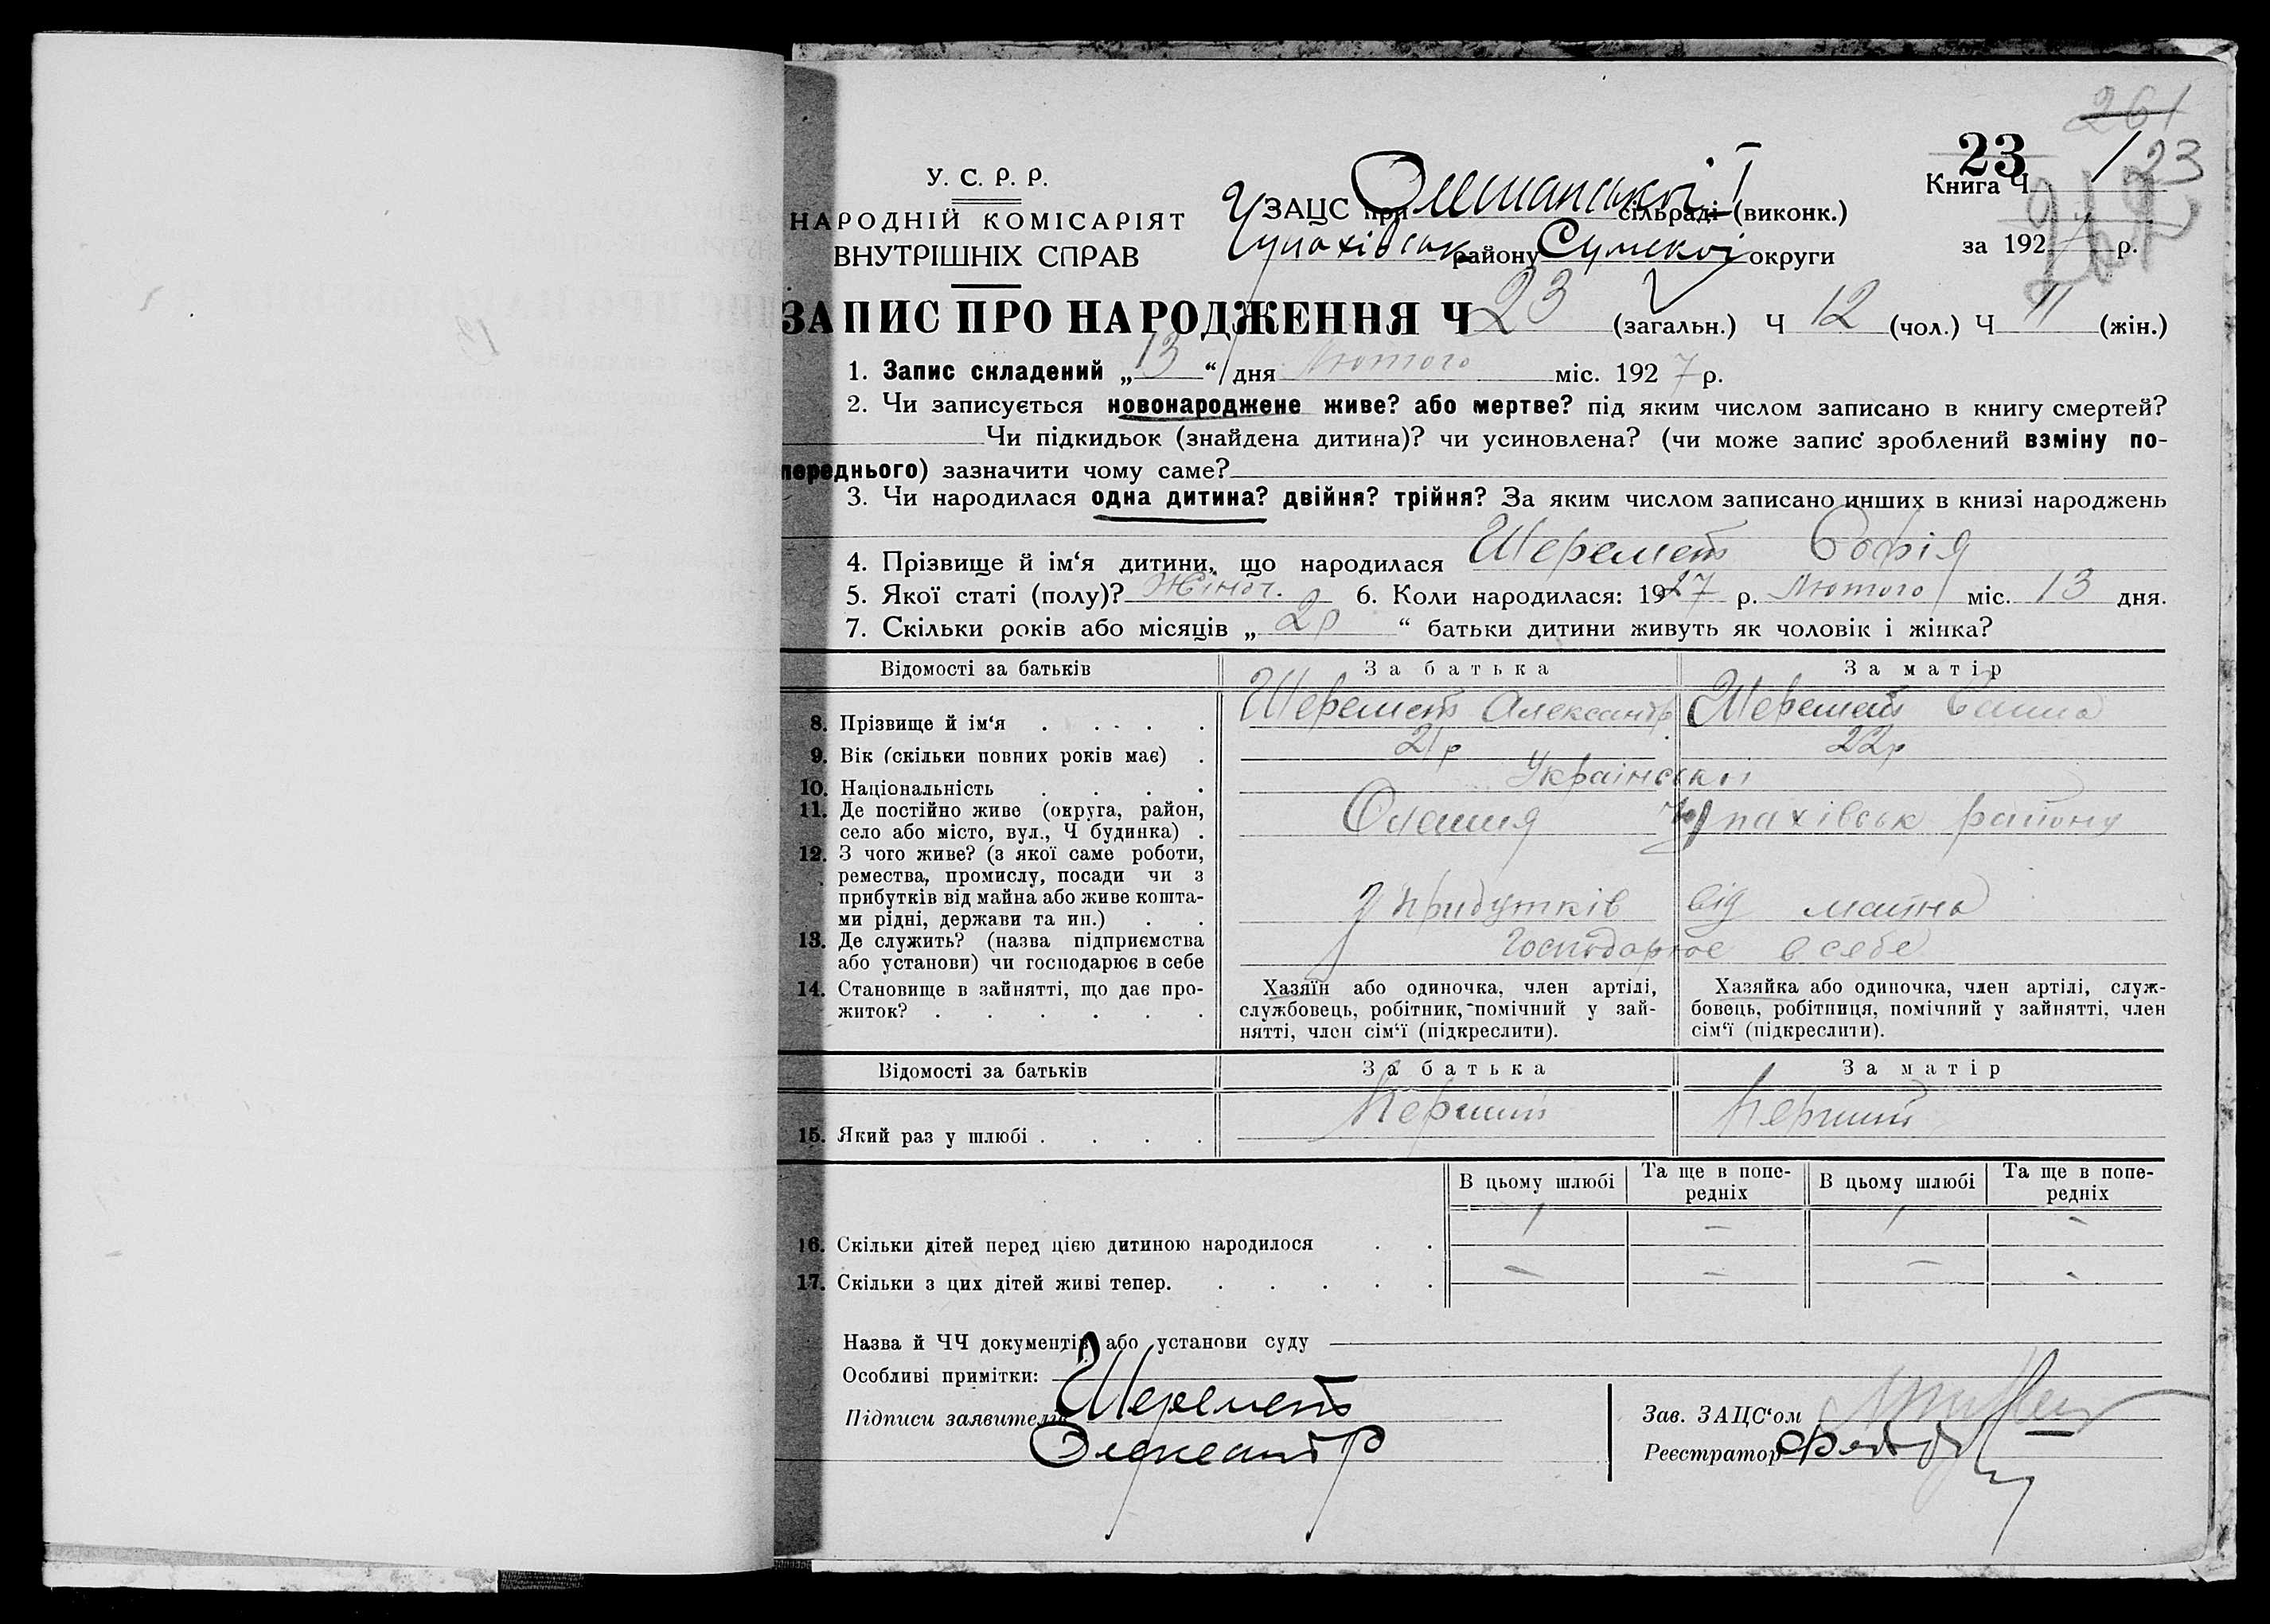 261
23 1 23
У. С. Р. Р.
НАРОДНІЙ КОМІСАРІЯТ
ВНУТРІШНІХ СПРАВ
ЗАЦС при Олешанськоі І сільраді (виконк.)
Чупахівськ району Сумськоі округи
Книга Ч.
за 1927 р.
ЗАПИС ПРО НАРОДЖЕННЯ Ч 23 (загальн.) Ч 12 (чол.) Ч 11 (жін.)
1. Запис складений „ 13 “ дня Лютого міс. 1927 р.
2. Чи записується новонароджене живе? або мертве? під яким числом записано в книгу смертей?
Чи підкидьок (знайдена дитина)? чи усиновлена? (чи може запис зроблений взміну по-
переднього) зазначити чому саме?
3. Чи народилася одна дитина? двійня? трійня? За яким числом записано инших в книзі народжень
4. Прізвище й ім‘я дитини, що народилася Шеремет Софія
5. Якої статі (полу)? Жіноч. 6. Коли народилася: 1927 р. Лютого міс. 13 дня.
7. Скільки років або місяців „ 2р “ батьки дитини живуть як чоловік і жінка?
Відомості за батьків За батька За матір
8. Прізвище й ім‘я Шеремет Александр Шеремет
9. Вік (скільки повних років має) 21р 22р
10. Національність Украінськоі
11. Де постійно живе (округа, район,
село або місто, вул., Ч будинка) Олешня Чупахівськ району
12. З чого живе? (з якої саме роботи,
ремества, промислу, посади чи з
прибутків від майна або живе кошта-
ми рідні, держави та ин.) З прибутків від майна
13. Де служить? (назва підприємства
або установи) чи господарює в себе Господарює в себе
14. Становище в зайнятті, що дає про-
житок?
Хазяїн або одиночка, член артілі,
службовець, робітник, помічний у зай-
нятті, член сім‘ї (підкреслити).
Хазяйка або одиночка, член артілі, служ-
бовець, робітниця, помічний у зайнятті, член
сім‘ї (підкреслити).
Відомості за батьків За батька За матір
15. Який раз у шлюбі Перший Перший
В цьому шлюбі Та ще в попе-
редніх В цьому шлюбі Та ще в попе-
редніх
16. Скільки дітей перед цією дитиною народилося 1 – 1 –
17. Скільки з цих дітей живі тепер. – – – –
Назва й ЧЧ документів або установи суду
Особливі примітки:
Підписи заявителів Шеремет
Олександр
Зав. ЗАЦС‘ом
Реєстратор